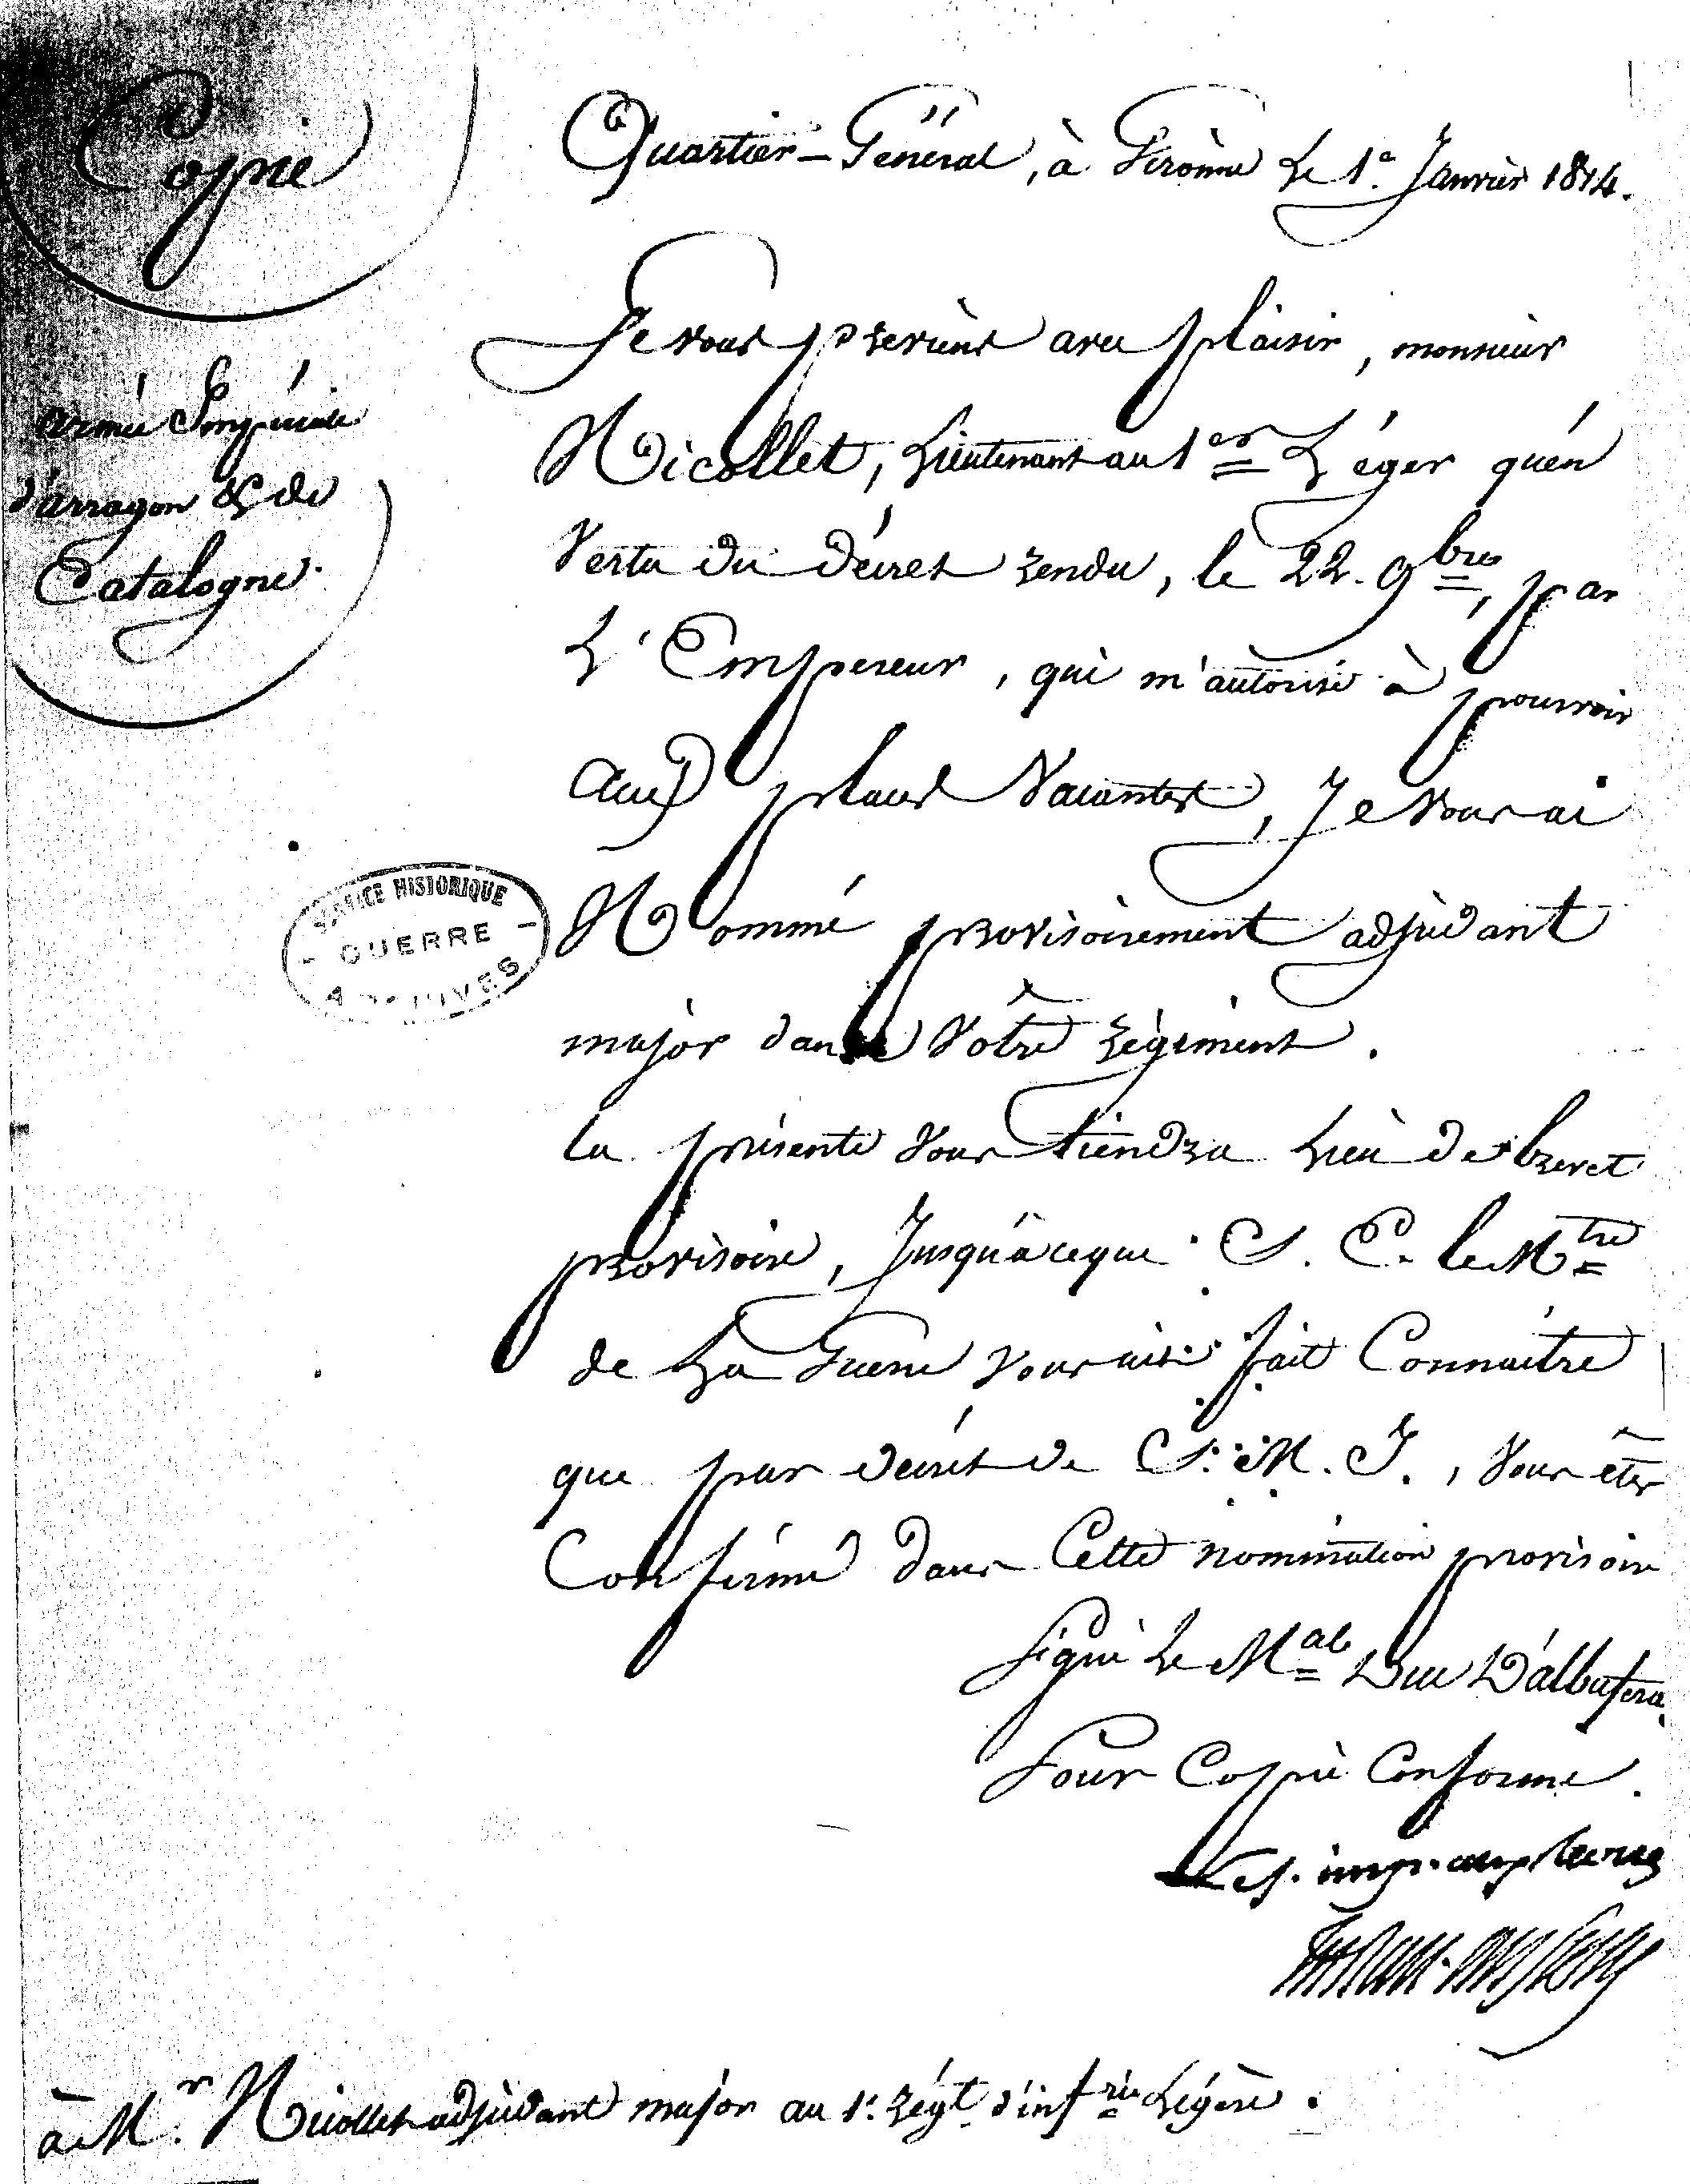 Copie
Quartier-Général, à Girònne Le 1er Janvièr 1814.
Armée Impériale
d'arragon & de
Catalogne.
Je vous prevìens avec plaisir, monsieur
Nicollet, Lieutenant au 1er Léger qu'en
Vertu du décret rendu, le 22. 9bre, par
L'Empereur, qui m'autorise à pourvoir
aux places Vacantes, Je vous ai
Nommé provisoirement adjudant
major dans Vôtre régiment.
la présente Vous tiendra Lieu de brevet
provisoire, Jusqu'à ceque S. E. le Mtre
de La Guerre vous ait fait Connaitre
que par décret de S. M. I., Vous êtes
Confirmé dans Cette nomination provisoire
signé Le Mal Duc D'albufera.
Pour Copie Conforme.
SERVICE HISTORIQUE
- GUERRE -
ARCHIVES
à Mr. Nicollet adjudant major au 1er régt d'infrie Légère.